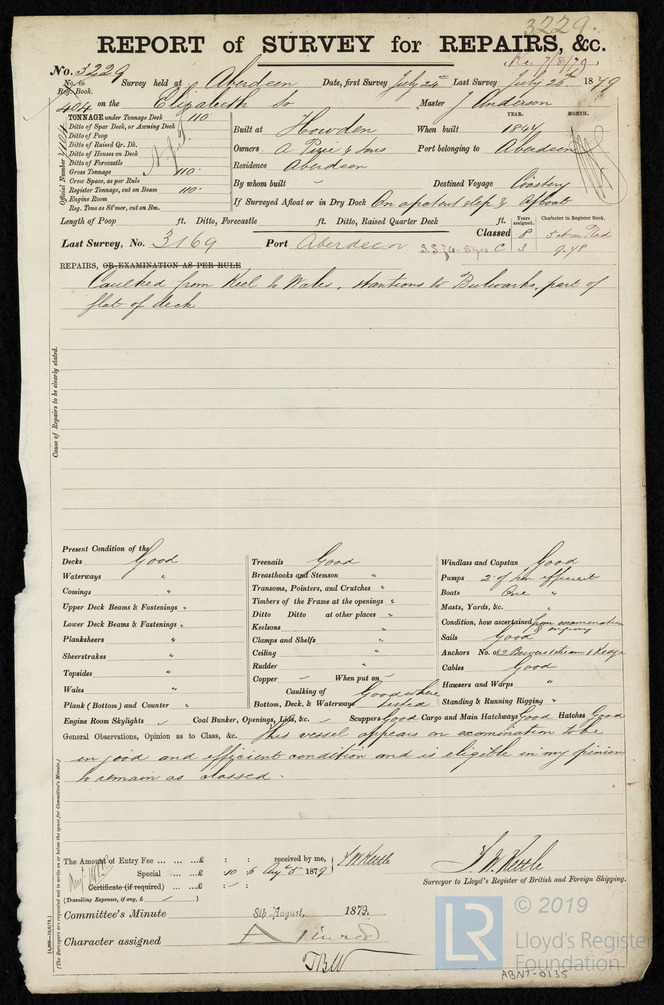 3229.
REPORT of SURVEY for REPAIRS, &c.
No. 3229 Survey held at Aberdeen Date, first Survey July 24th Last Survey July 26th 1879
No. in Reg. Book.
404 on the Elizabeth Sr Master J Anderson
TONNAGE under Tonnage Deck 110
Ditto of Spar Deck, or Awning Deck
Ditto of Poop
Ditto of Raised Qr. Dk.
Ditto of Houses on Deck
Ditto of Forecastle
Gross Tonnage 110
Crew Space, as per Rule
Register Tonnage, cut on Beam 110
Engine Room
Reg. Tons as St'mer, cut on Bm.
Official Number
YEAR. MONTH.
Built at Howden When built 1844
Owners A Pirie & Sons Port belonging to Aberdeen
Residence Aberdeen
By whom built - Destined Voyage Coasting
If Surveyed Afloat or in Dry Dock On a patent slip & Afloat
Length of Poop ft. Ditto, Forecastle ft. Ditto, Raised Quarter Deck ft.
Years assigned. Character in Register Book.
Last Survey, No. 3169 Port Aberdeen Classed 8
C 3 9.78
REPAIRS, OR EXAMINATION AS PER RULE
Caulked from Keel to Wales, stantions to Bulwarks, part of
flat of deck
Cause of Repairs to be clearly stated.
Present Condition of the
Decks Good
Waterways "
Comings "
Upper Deck Beams & Fastenings "
Lower Deck Beams & Fastenings "
Planksheers "
Sheerstrakes "
Topsides "
Wales "
Plank (Bottom) and Counter "
Treenails Good
Breasthooks and Stemson "
Transoms, Pointers, and Crutches "
Timbers of the Frame at the openings "
Ditto Ditto at other places "
Keelsons "
Clamps and Shelfs "
Ceiling "
Rudder "
Copper - When put on -
Caulking of Bottom, Deck, & Waterways Good where tested
Windlass and Capstan Good
Pumps 2 of iron efficient
Boats One "
Masts, Yards, &c. "
Condition, how ascertained from examination & enquiry
Sails Good
Anchors No. of 2 Bowers 1 stream 1 Kedge
Cables Good
Hawsers and Warps "
Standing & Running Rigging "
Engine Room Skylights - Coal Bunker, Openings, Lids, &c. - Scuppers Good Cargo and Main Hatchways Good Hatches Good
General Observations, Opinion as to Class, &c. This vessel appears on examination to be
in good and efficient condition and is eligible in my opinion
to remain as classed.
(The Surveyors are requested not to write on or below the space for Committee's Minute.)
The Amount of Entry Fee ... ... ...£ : : received by me,
Special ... ...£ 10 6 Aug 5 1879
Certificate (if required) ...£ : - :
(Travelling Expenses, if any, £ )
Committee's Minute 8th August, 1879.
Character assigned
TBW
Surveyor to Lloyd's Register of British and Foreign Shipping.
LR © 2019
Lloyd's Register
Foundation
ABN7-0135